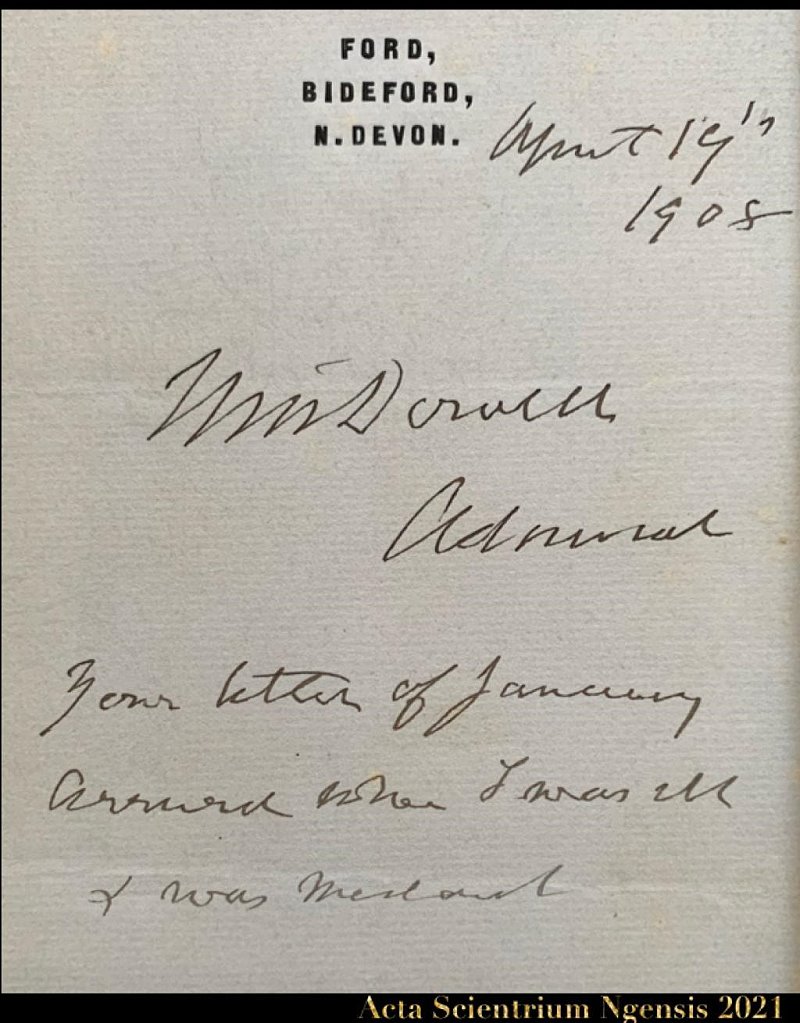 FORD,
BIDEFORD,
N. DEVON.
April 19th
1908
Dowell
Admiral
Your letter of January
arrived when I was ill
& was mislaid
Acta Scientrium Ngensis 2021